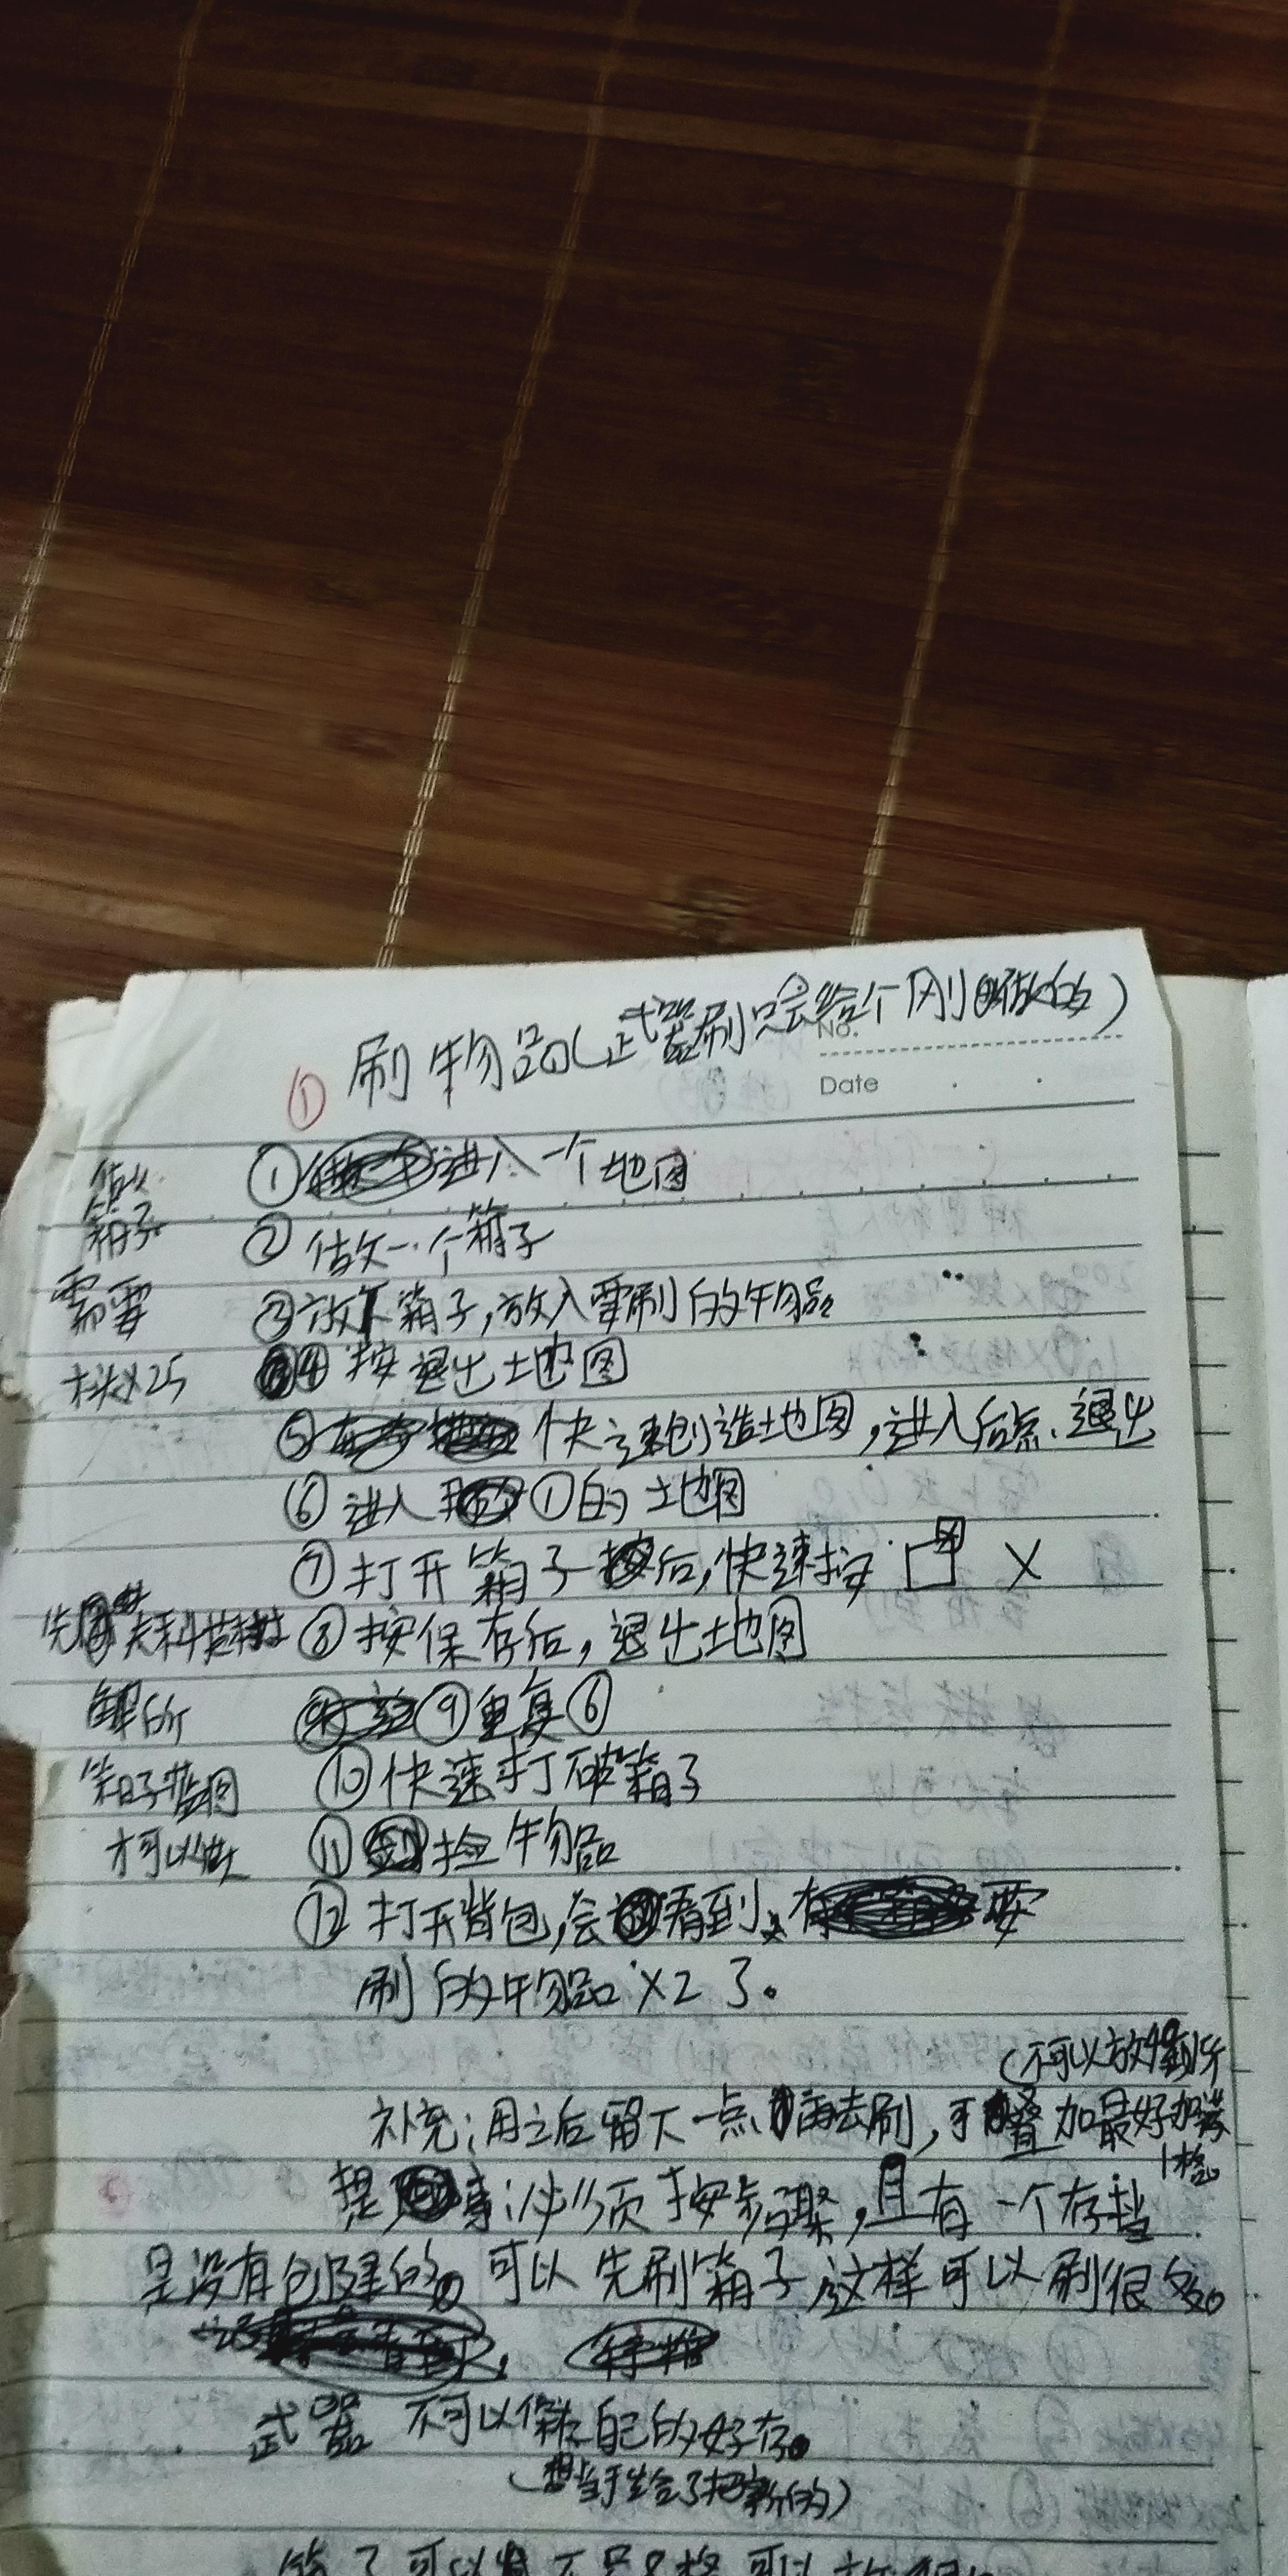 刷物品(武器刷只会给个刚做的)
No.
Date
①
①进入一个地图
做
箱子
②做一个箱子
需要
③放下箱子,放入要刷的物品
木头x25
④按退出地图
⑤快速创造地图,进入后点退出
⑥进入①的地图
⑦打开箱子后,快速按 X
先用夫科技
⑧按保存后,退出地图
解所
⑨重复⑥
箱子蓝图
⑩快速打破箱子
才可以做
⑪捡物品
⑫打开背包,会看到有要
刷的物品x2了。
(不可以放
补充:用之后留下一点再去刷,可叠加最好加满
1格
提:必须按步骤,且有一个存档
是没有创建的。可以先刷箱子这样可以刷很多。
武器不可以保自己的好存。
(相当于给了把新的)